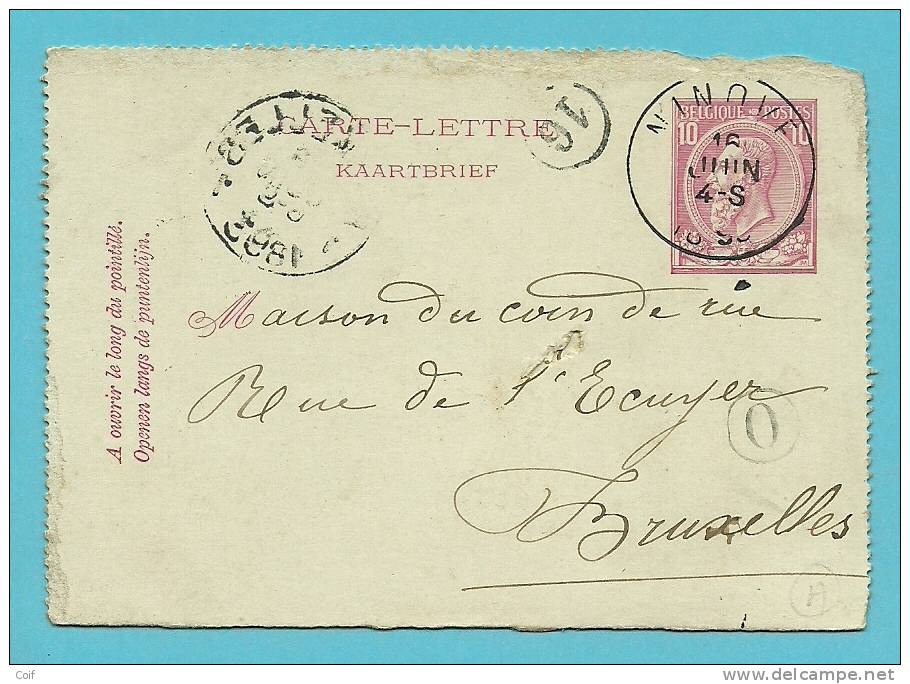 CARTE-LETTRE
KAARTBRIEF
BELGIQUE POSTES
10 10
NINOVE
16
JUIN
4-S
16
A ouvrir le long du pointillé.
Openen langs de puntenlijn.
Maison du coin de rue
Rue de l'Ecuyer
Bruxelles
O
A
Coif
delcampe.net